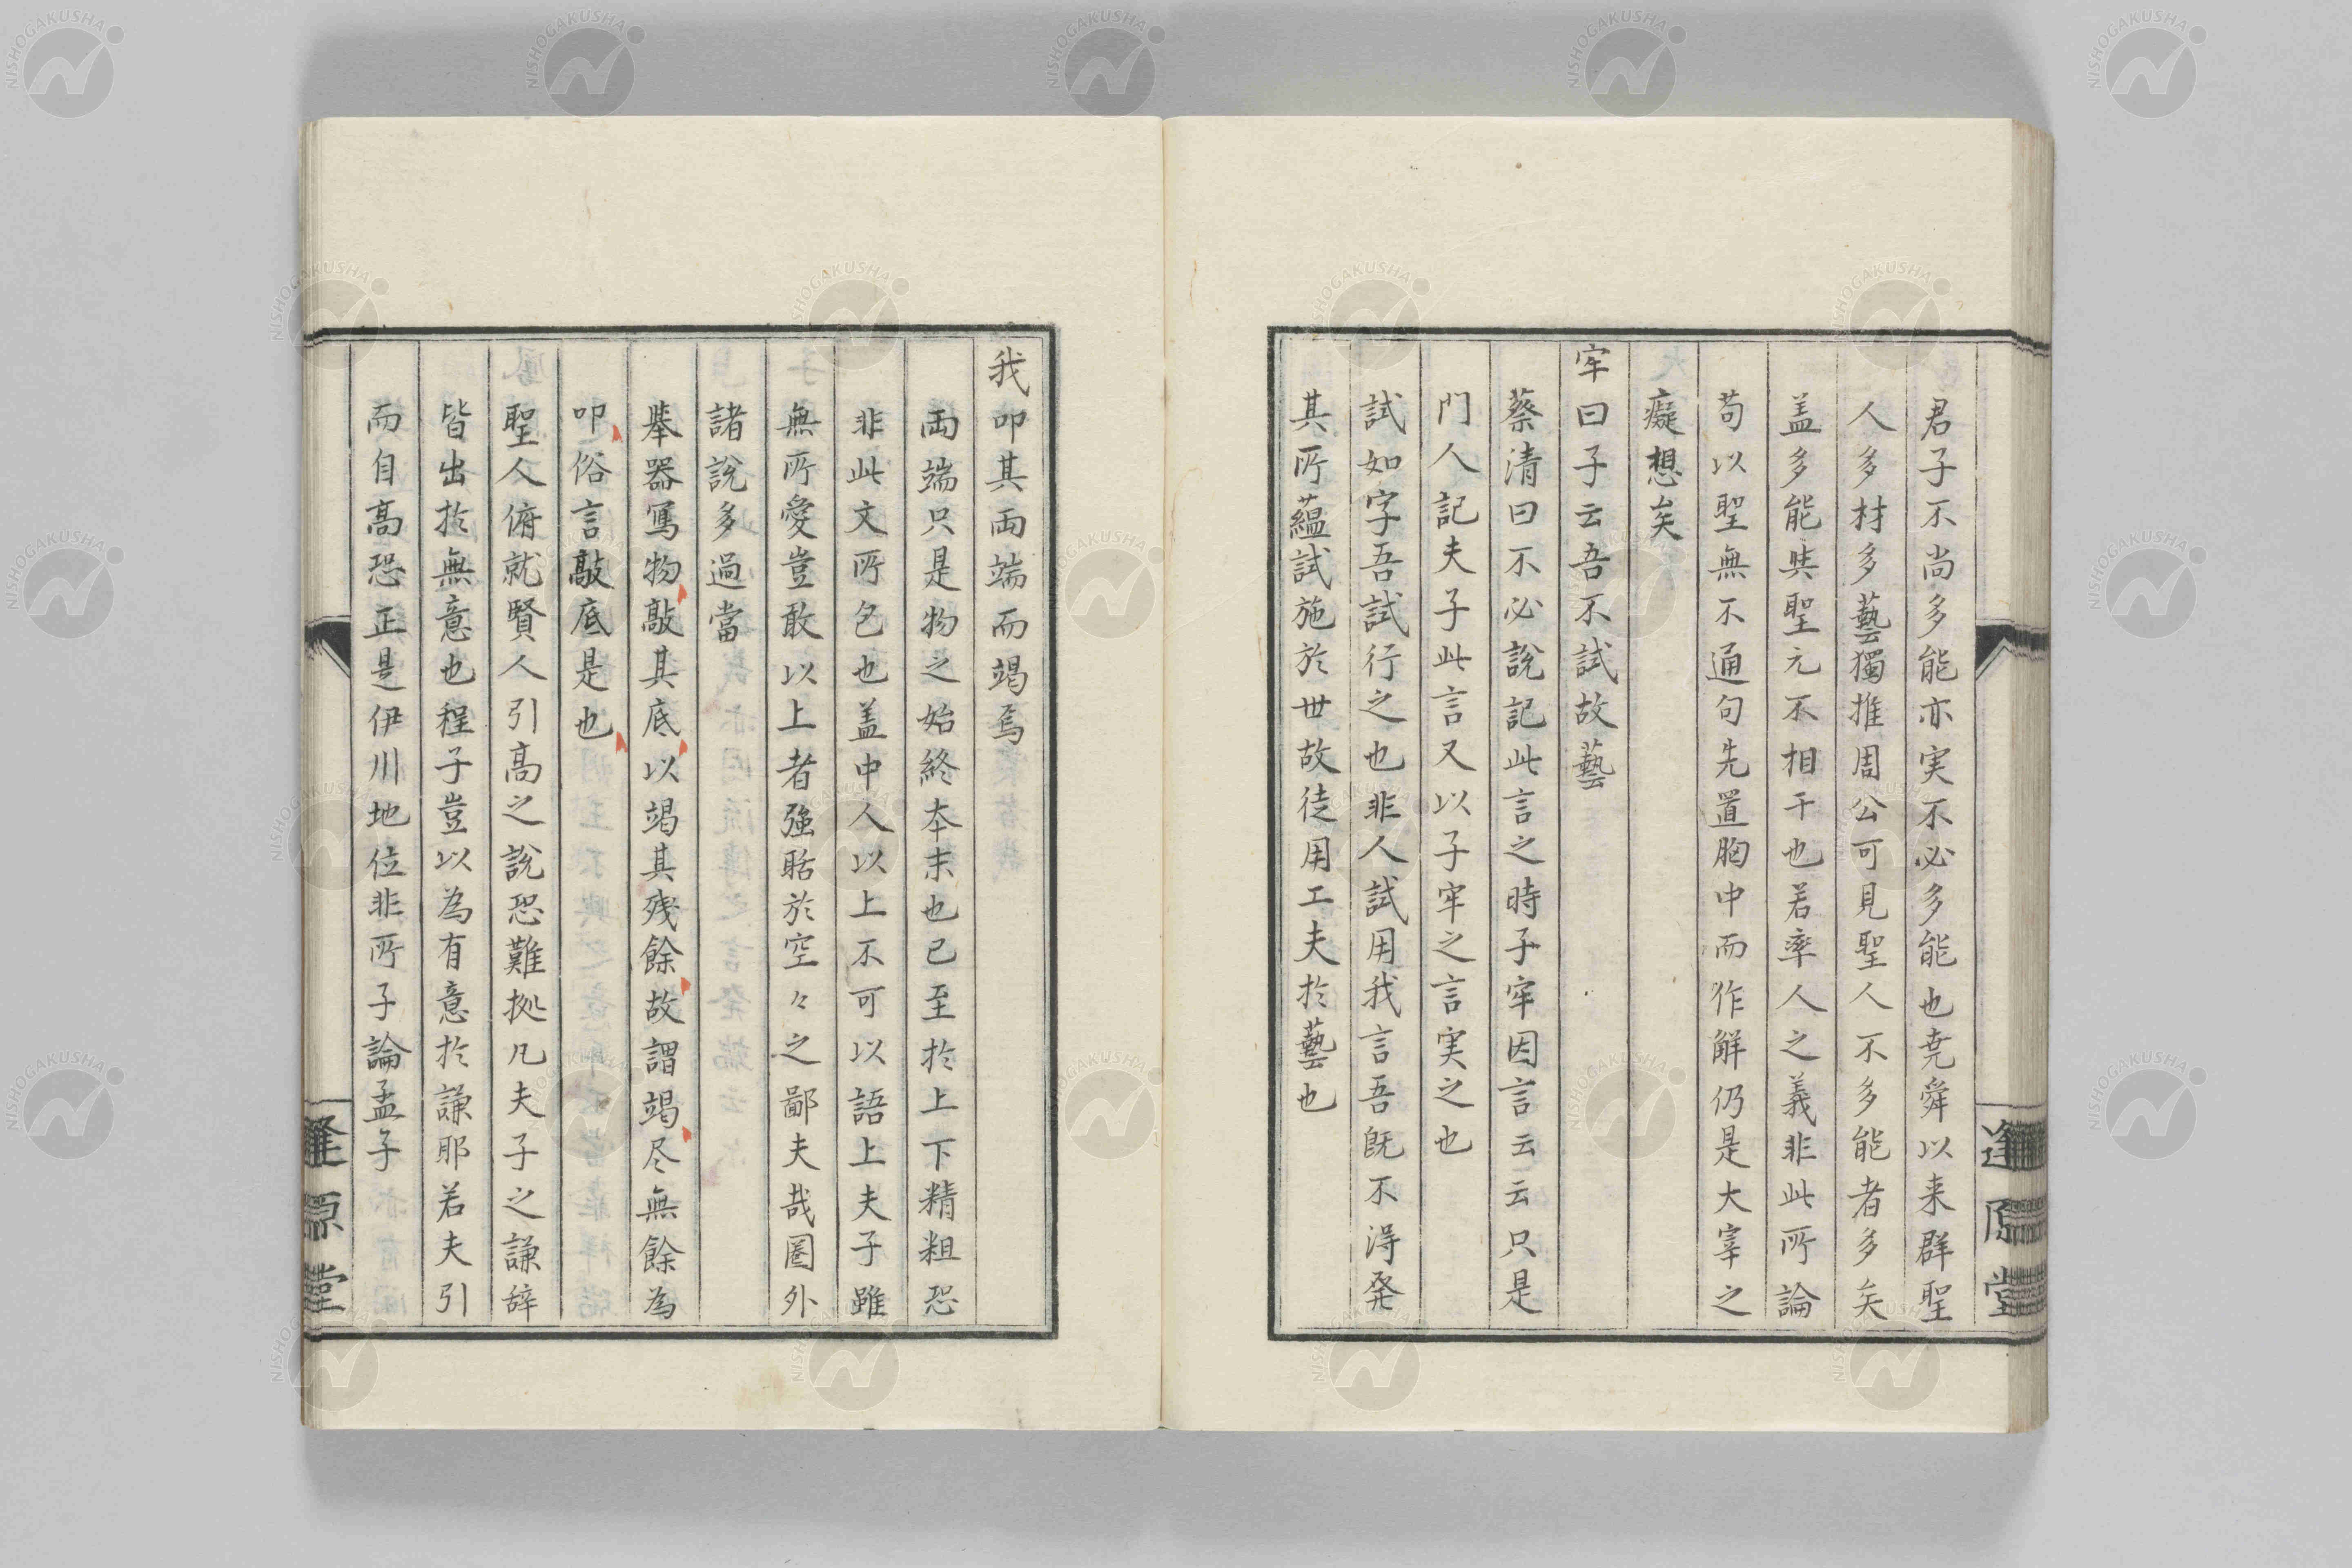 君子不尚多能亦実不必多能也尭舜以来群聖
人多材多藝獨推周公可見聖人不多能者多矣
盖多能與聖元不相干也若率人之義非此所論
苟以聖無不通句先置胸中而作解仍是大宰之
癡想矣
牢曰子云吾不試故藝
蔡清曰不必說記此言之時子牢因言云云只是
門人記夫子此言又以子牢之言実之也
試如字吾試行之也非人試用我言吾既不淂発
其所蘊試施於世故徒用工夫於藝也
逢原堂
我叩其両端而竭焉
両端只是物之始終本末也已至於上下精粗恐
非此文所包也盖中人以上不可以語上夫子雖
無所愛豈敢以上者強聒於空々之鄙夫哉圏外
諸說多過當
挙器寫物敲其底以竭其残餘故謂竭尽無餘為
叩俗言敲底是也
聖人俯就賢人引高之說恐難拠凡夫子之謙辞
皆出於無意也程子豈以為有意於謙耶若夫引
而自高恐正是伊川地位非所子論孟子
逢原堂
NISHOGAKUSHA